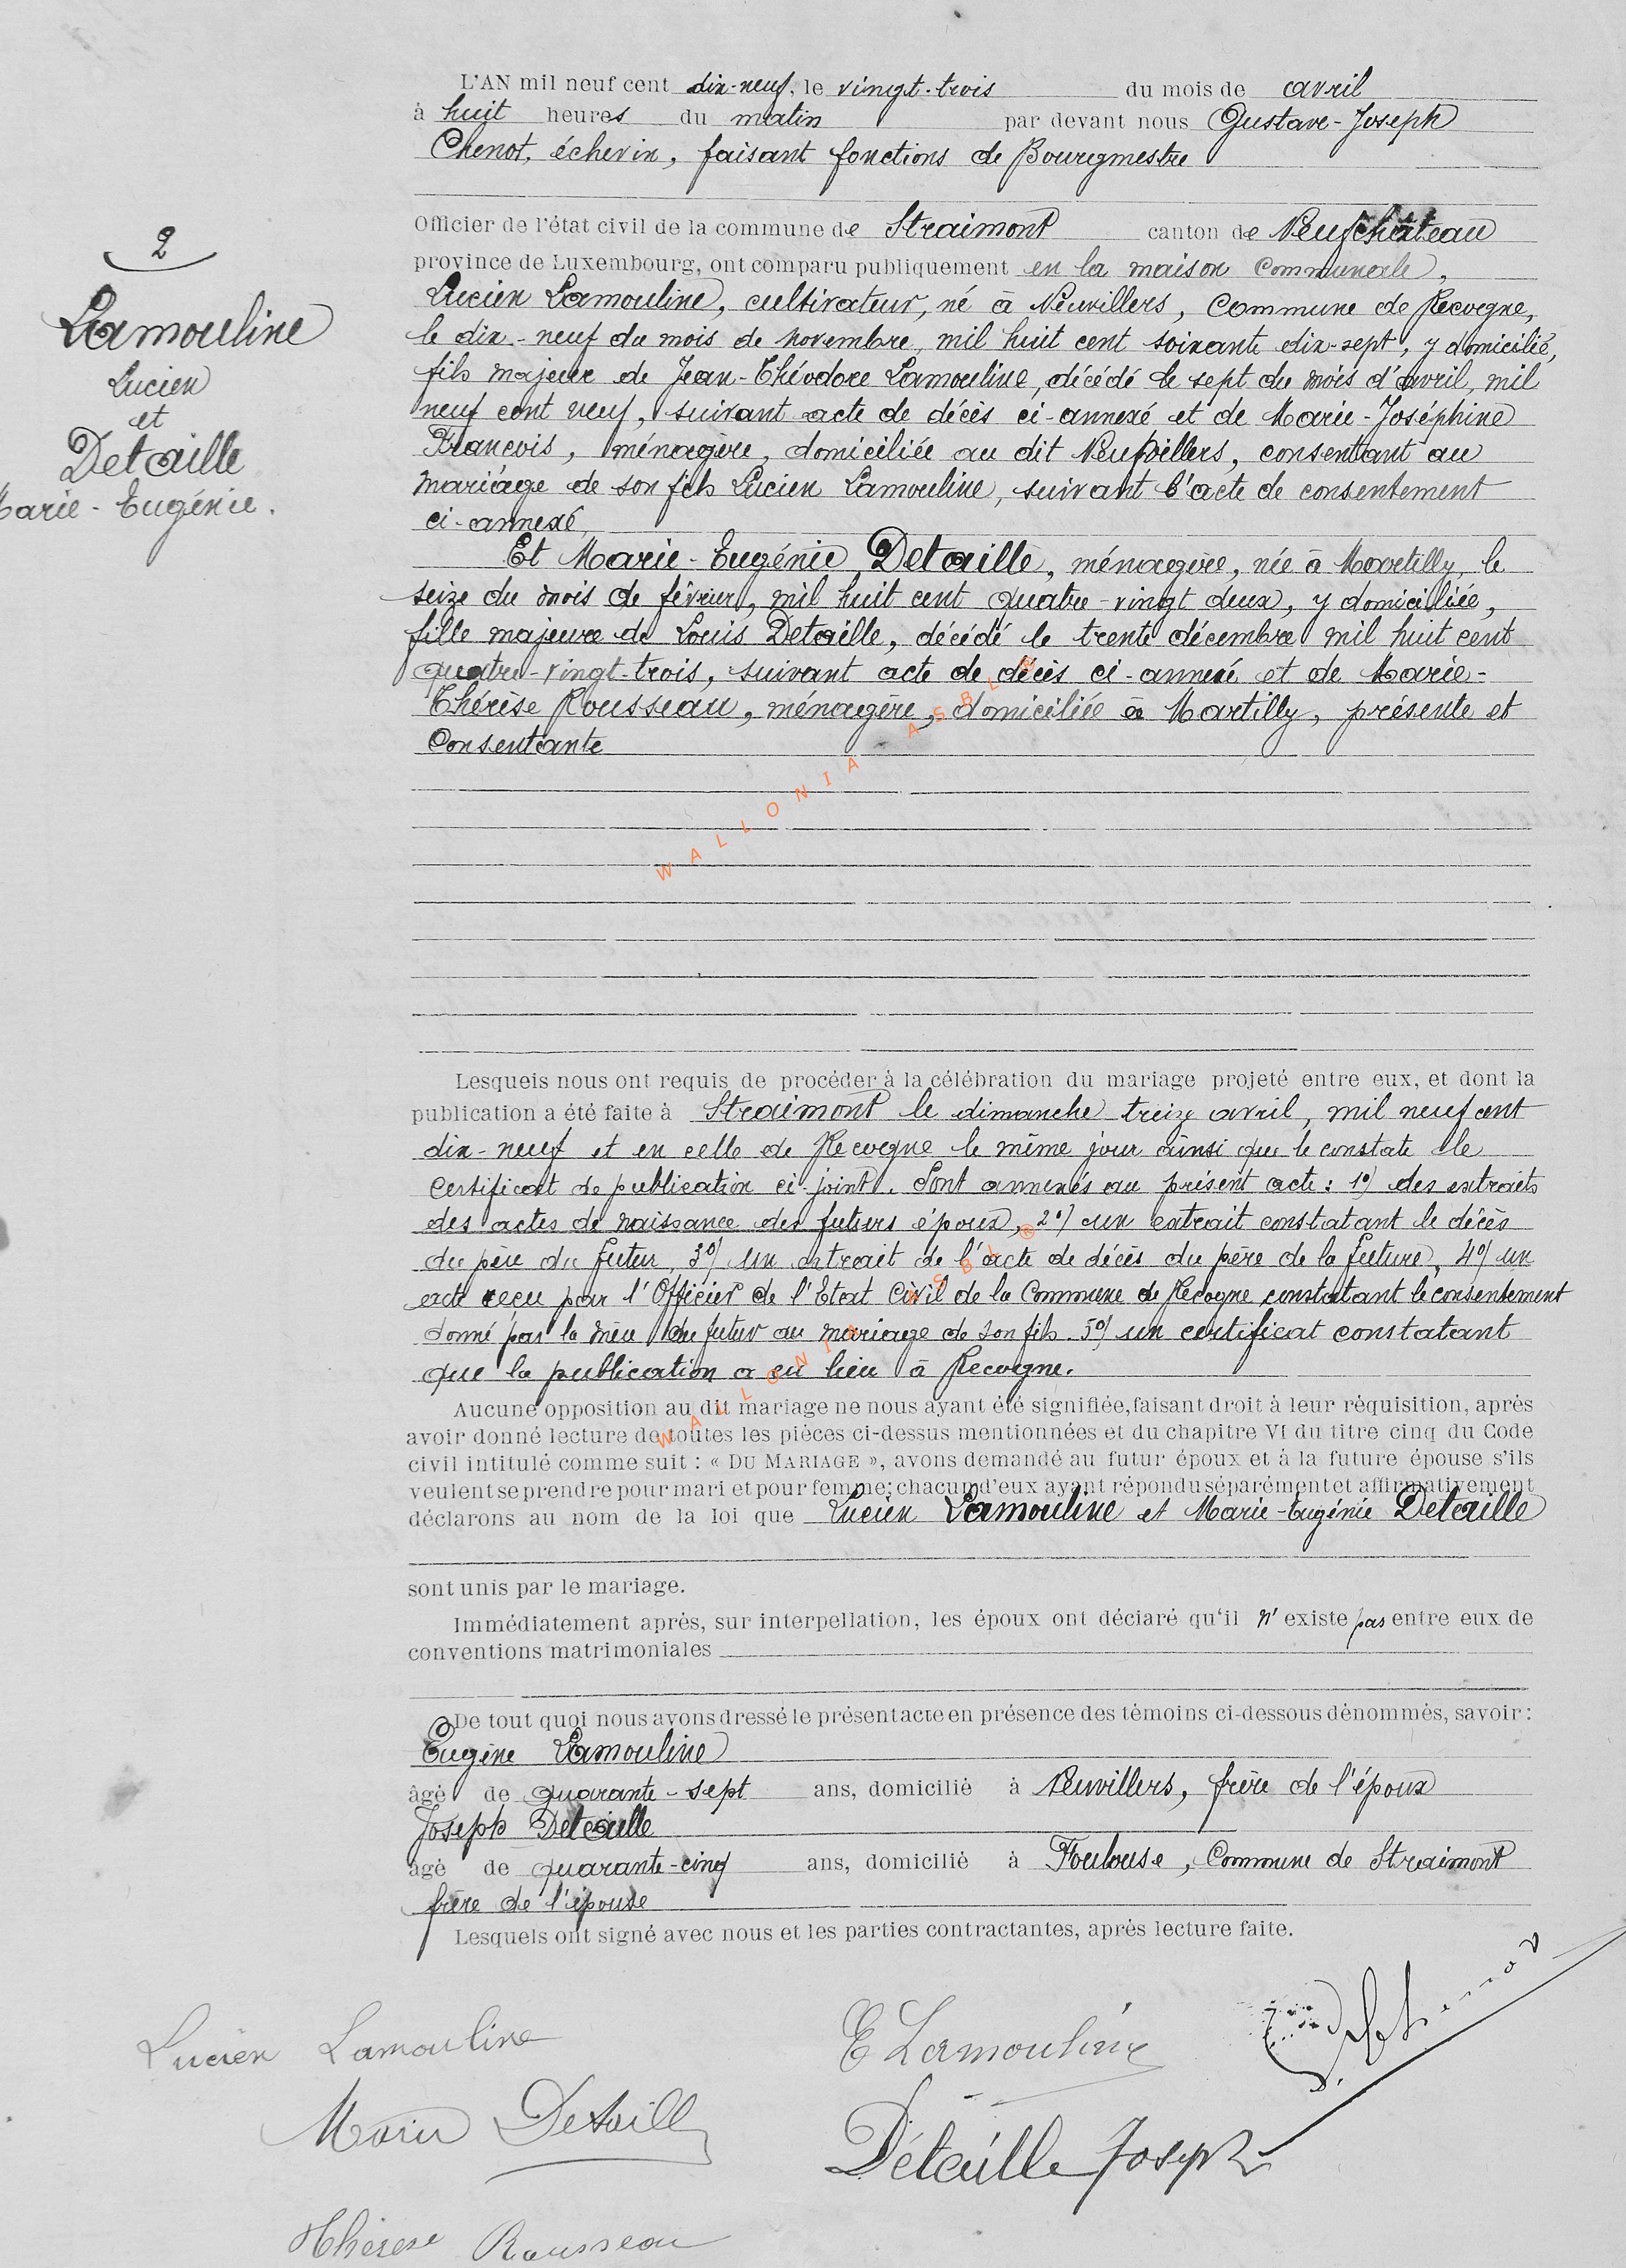 L'AN mil neuf cent dix-neuf, le vingt-trois du mois de avril
à huit heures du matin par devant nous Gustave-Joseph
Chenot, échevin, faisant fonctions de Bourgmestre
Officier de l'état civil de la commune de Straimont canton de Neufchâteau
province de Luxembourg, ont comparu publiquement en la maison Communale,
2
Lamouline
Lucien
et
Detaille
Marie-Eugénie.
Lucien Lamouline, cultivateur, né à Neuvillers, Commune de Recogne,
le dix-neuf du mois de novembre, mil huit cent soixante dix-sept, y domicilié,
fils majeur de Jean-Théodore Lamouline, décédé le sept du mois d'avril, mil
neuf cent neuf, suivant acte de décès ci-annexé et de Marie-Joséphine
François, ménagère, domiciliée au dit Neufvillers, consentant au
mariage de son fils Lucien Lamouline, suivant l'acte de consentement
ci-annexé,
Et Marie-Eugénie Detaille, ménagère, née à Martilly, le
seize du mois de février, mil huit cent quatre-vingt deux, y domiciliée,
fille majeure de Louis Detaille, décédé le trente décembre mil huit cent
quatre-vingt-trois, suivant acte de décès ci-annexé et de Marie-
Thérèse Rousseau, ménagère, domiciliée à Martilly, présente et
Consentante
WALLONIA ASBL ®
Lesquels nous ont requis de procéder à la célébration du mariage projeté entre eux, et dont la
publication a été faite à Straimont le dimanche treize avril, mil neuf cent
dix-neuf et en celle de Recogne le même jour ainsi que le constate le
Certificat de publication ci-joint. Sont annexés au présent acte: 1°/ des extraits
des actes de naissance des futurs époux, 2°/ un extrait constatant le décès
du père du futur, 3°/ un extrait de l'acte de décès du père de la future, 4°/ un
acte reçu par l'Officier de l'Etat Civil de la Commune de Recogne constatant le consentement
donné par la mère du futur au mariage de son fils. 5°/ un certificat constatant
que la publication a eu lieu à Recogne.
WALLONIA ASBL ®
Aucune opposition au dit mariage ne nous ayant été signifiée, faisant droit à leur réquisition, après
avoir donné lecture de toutes les pièces ci-dessus mentionnées et du chapitre VI du titre cinq du Code
civil intitulé comme suit : « DU MARIAGE », avons demandé au futur époux et à la future épouse s'ils
veulent se prendre pour mari et pour femme; chacun d'eux ayant répondu séparément et affirmativement
déclarons au nom de la loi que Lucien Lamouline et Marie-Eugénie Detaille
sont unis par le mariage.
Immédiatement après, sur interpellation, les époux ont déclaré qu'il n'existe pas entre eux de
conventions matrimoniales
De tout quoi nous avons dressé le présent acte en présence des témoins ci-dessous dénommés, savoir :
Eugène Lamouline
âgé de quarante-sept ans, domicilié à Neuvillers, frère de l'époux
Joseph Detaille
âgé de quarante-cinq ans, domicilié à Toulouse, Commune de Straimont
frère de l'épouse
Lesquels ont signé avec nous et les parties contractantes, après lecture faite.
Lucien Lamouline
E Lamouline
Marie Detaille
Détaille Joseph
Thérèse Rousseau